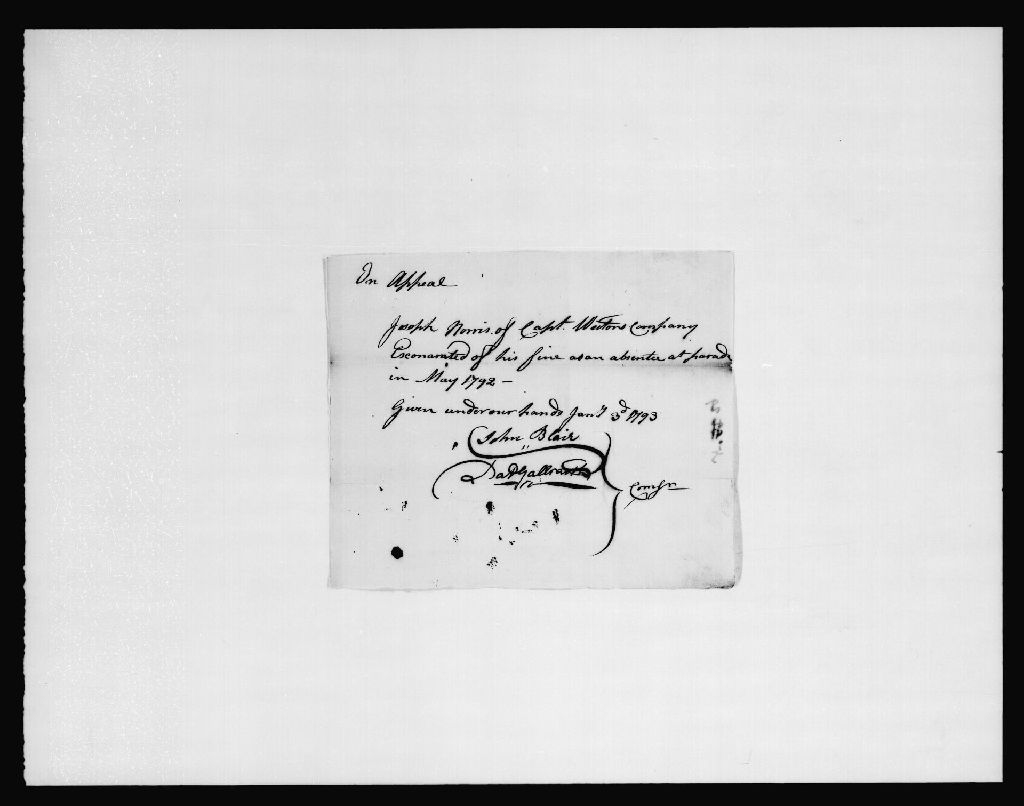 On Appeal
Joseph Norris of Capt. Company
Exonarated of his fine as an absentee at parade
in May 1792 –
Given under our hands Jany 3d 1793
John Blair
Comsr